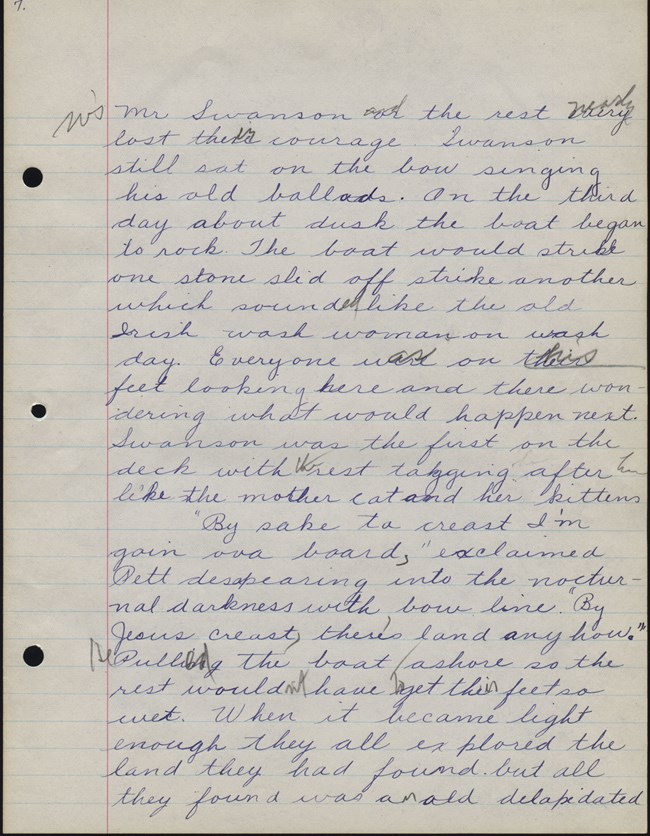 7.
Mr Swanson and the rest nearly
lost their courage. Swanson
still sat on the bow singing
his old ballads. On the third
day about dusk the boat began
to rock. The boat would strike
one stone slid off strike another
which sounded like the old
Irish wash woman on wash
day. Everyone was on his
feet looking here and there won-
dering what would happen next.
Swanson was the first on the
deck with the rest tagging after him
like the mother cat and her kittens
"By sake to creast I'm
goin ova board," exclaimed
Pett dessapearing into the noctur-
nal darkness with bow line. "By
Jesus creast, there's land anyhow."
He Pulled the boat ashore so the
rest wouldn't have to get their feet so
wet. When it became light
enough they all explored the
land they had found but all
they found was an old delapidated